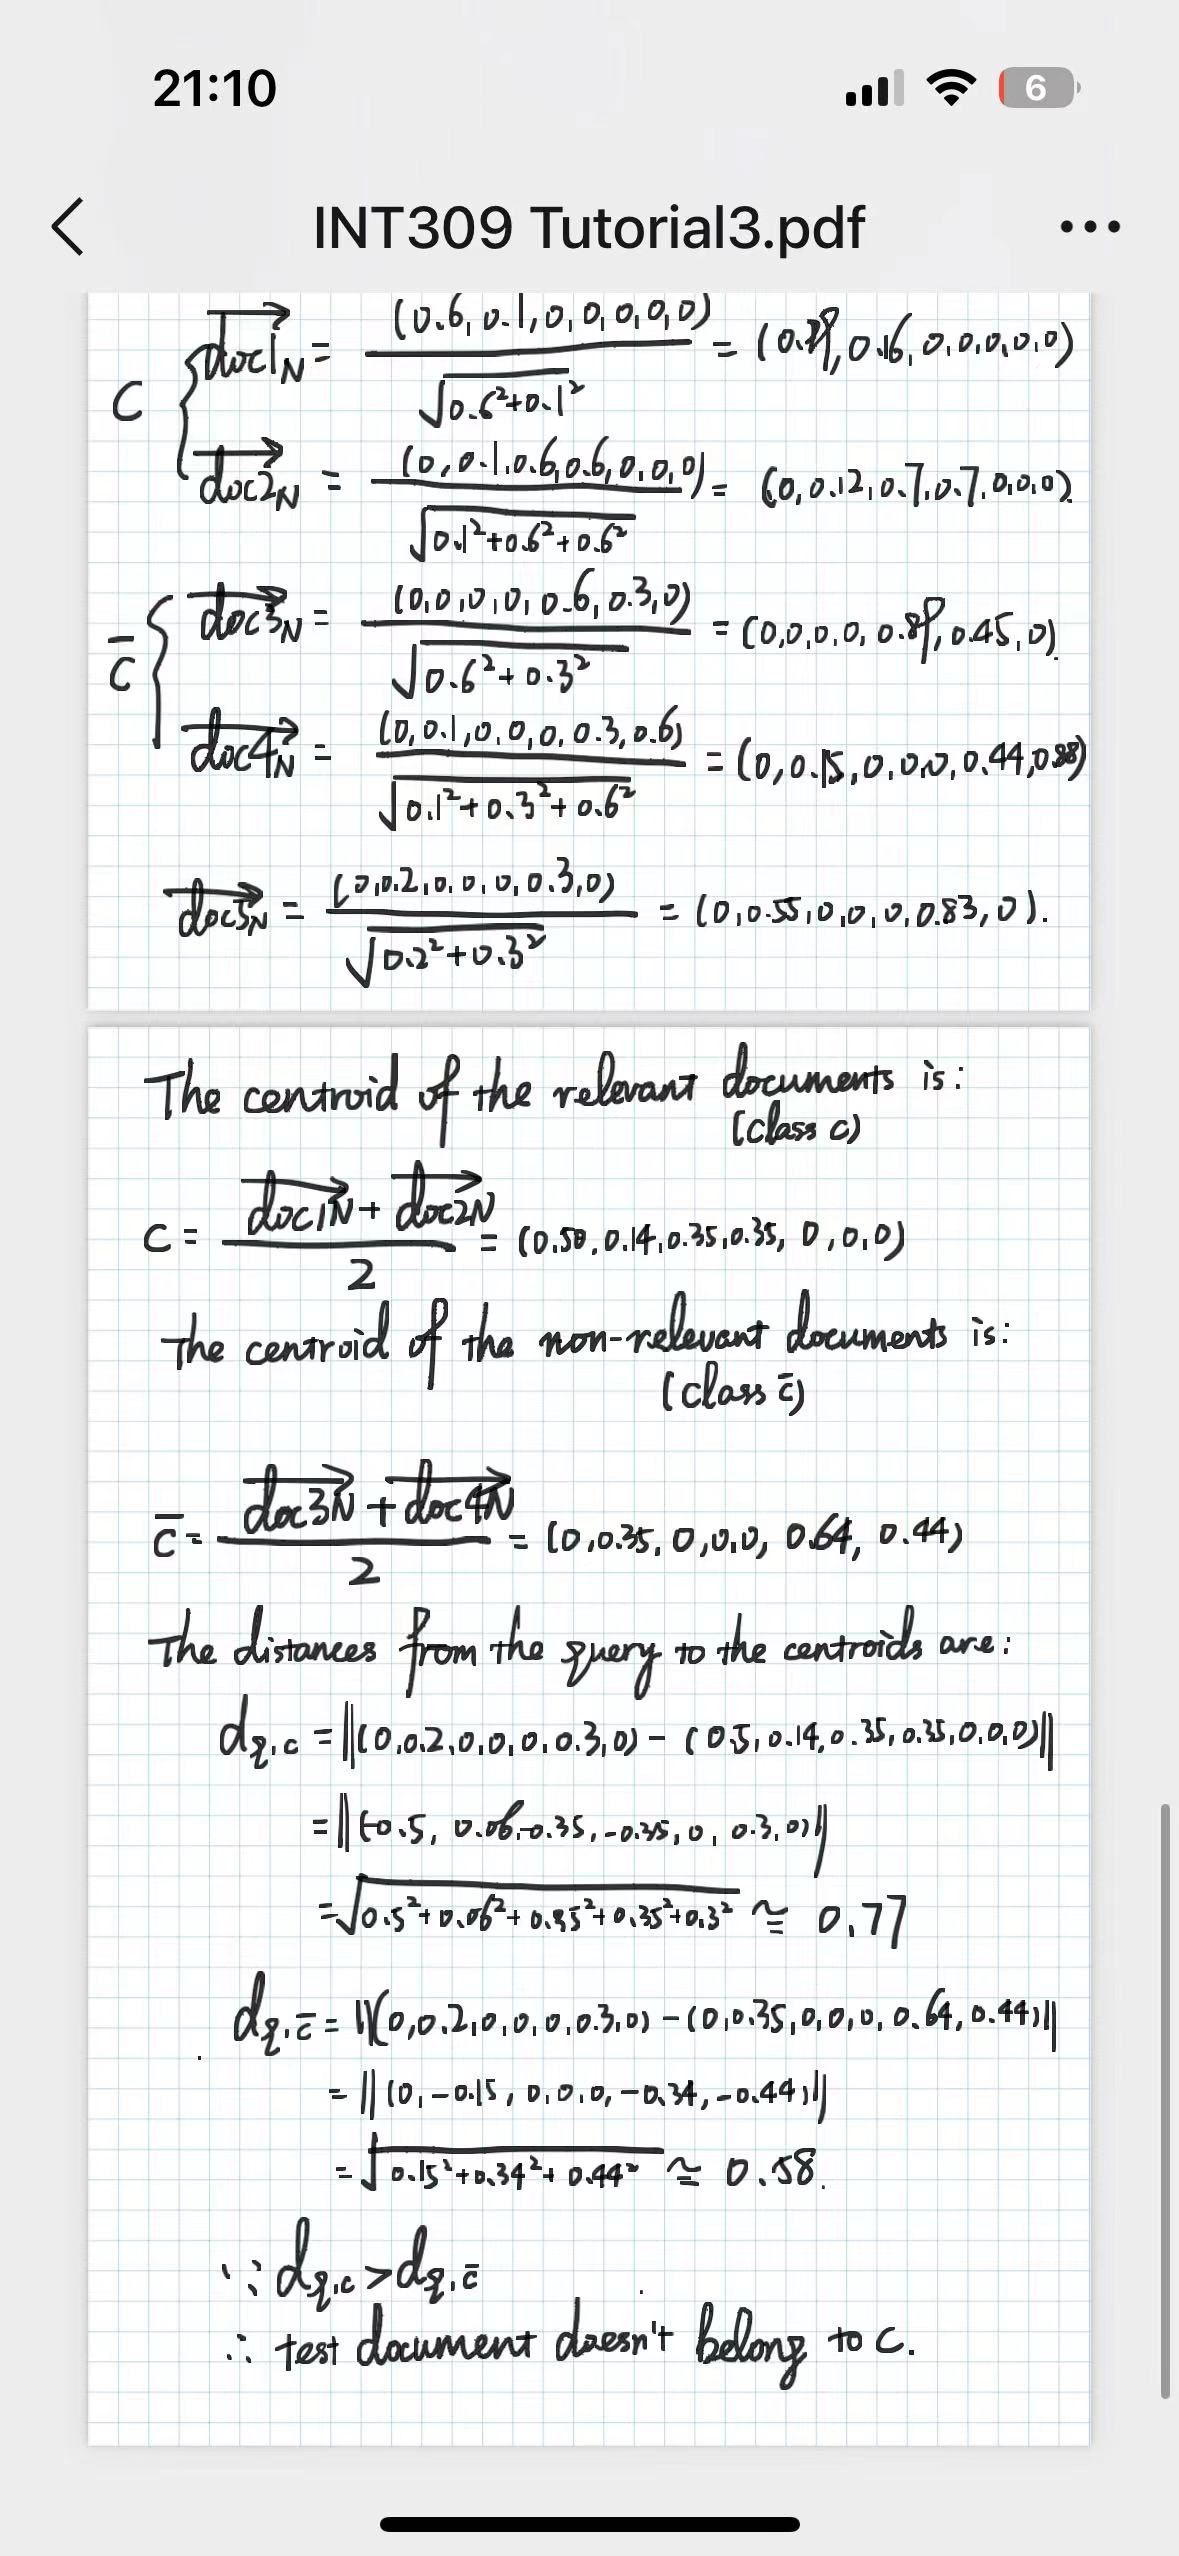 21:10
6
INT309 Tutorial3.pdf
C { doc1N = (0.6, 0.1, 0, 0, 0, 0, 0) / √(0.6² + 0.1²) = (0.99, 0.16, 0, 0, 0, 0, 0)
doc2N = (0, 0.1, 0.6, 0.6, 0, 0, 0) / √(0.1² + 0.6² + 0.6²) = (0, 0.12, 0.7, 0.7, 0, 0, 0)
C̄ { doc3N = (0, 0, 0, 0, 0.6, 0.3, 0) / √(0.6² + 0.3²) = (0, 0, 0, 0, 0.89, 0.45, 0)
doc4N = (0, 0.1, 0, 0, 0, 0.3, 0.6) / √(0.1² + 0.3² + 0.6²) = (0, 0.15, 0, 0, 0, 0.44, 0.88)
doc5N = (0, 0.2, 0, 0, 0, 0.3, 0) / √(0.2² + 0.3²) = (0, 0.55, 0, 0, 0, 0.83, 0).
The centroid of the relevant documents is:
(class c)
C = (doc1N + doc2N) / 2 = (0.50, 0.14, 0.35, 0.35, 0, 0, 0)
The centroid of the non-relevant documents is:
(class c̄)
c̄ = (doc3N + doc4N) / 2 = (0, 0.35, 0, 0, 0, 0.64, 0.44)
The distances from the query to the centroids are:
dq,c = ||(0, 0.2, 0, 0, 0, 0.3, 0) - (0.5, 0.14, 0.35, 0.35, 0, 0, 0)||
= ||(-0.5, 0.06, -0.35, -0.35, 0, 0.3, 0)||
= √(0.5² + 0.06² + 0.35² + 0.35² + 0.3²) ≅ 0.77
dq,c̄ = ||(0, 0.2, 0, 0, 0, 0.3, 0) - (0, 0.35, 0, 0, 0, 0.64, 0.44)||
= ||(0, -0.15, 0, 0, 0, -0.34, -0.44)||
= √(0.15² + 0.34² + 0.44²) ≅ 0.58.
∵ dq,c > dq,c̄
∴ test document doesn't belong to C.